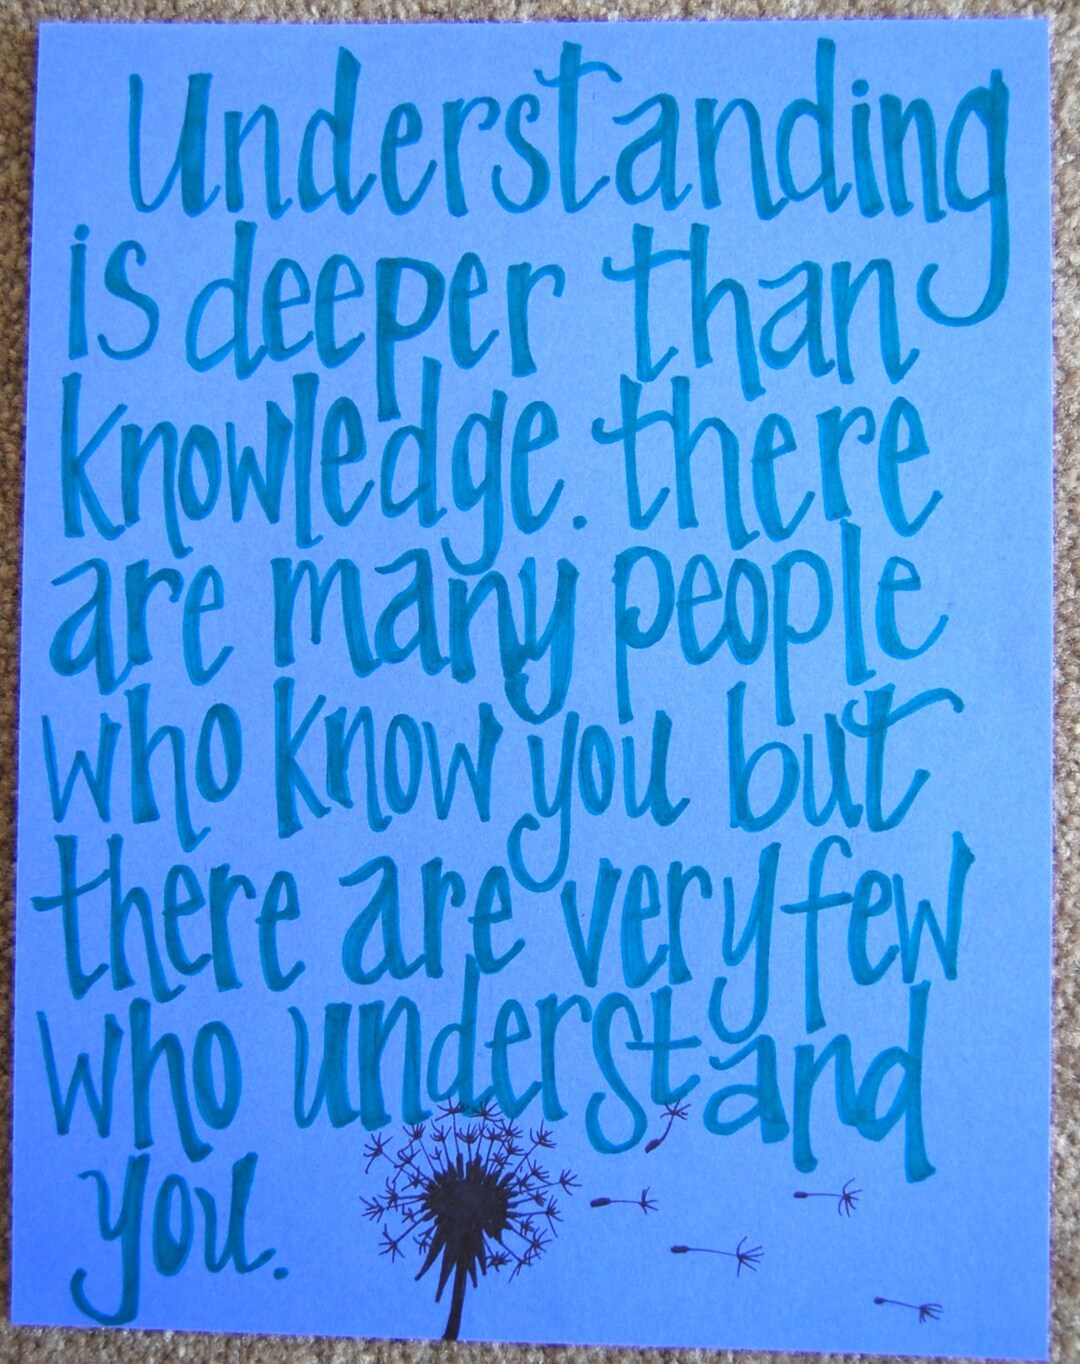 Understanding
is deeper than
knowledge. there
are many people
who know you but
there are very few
who understand
you.